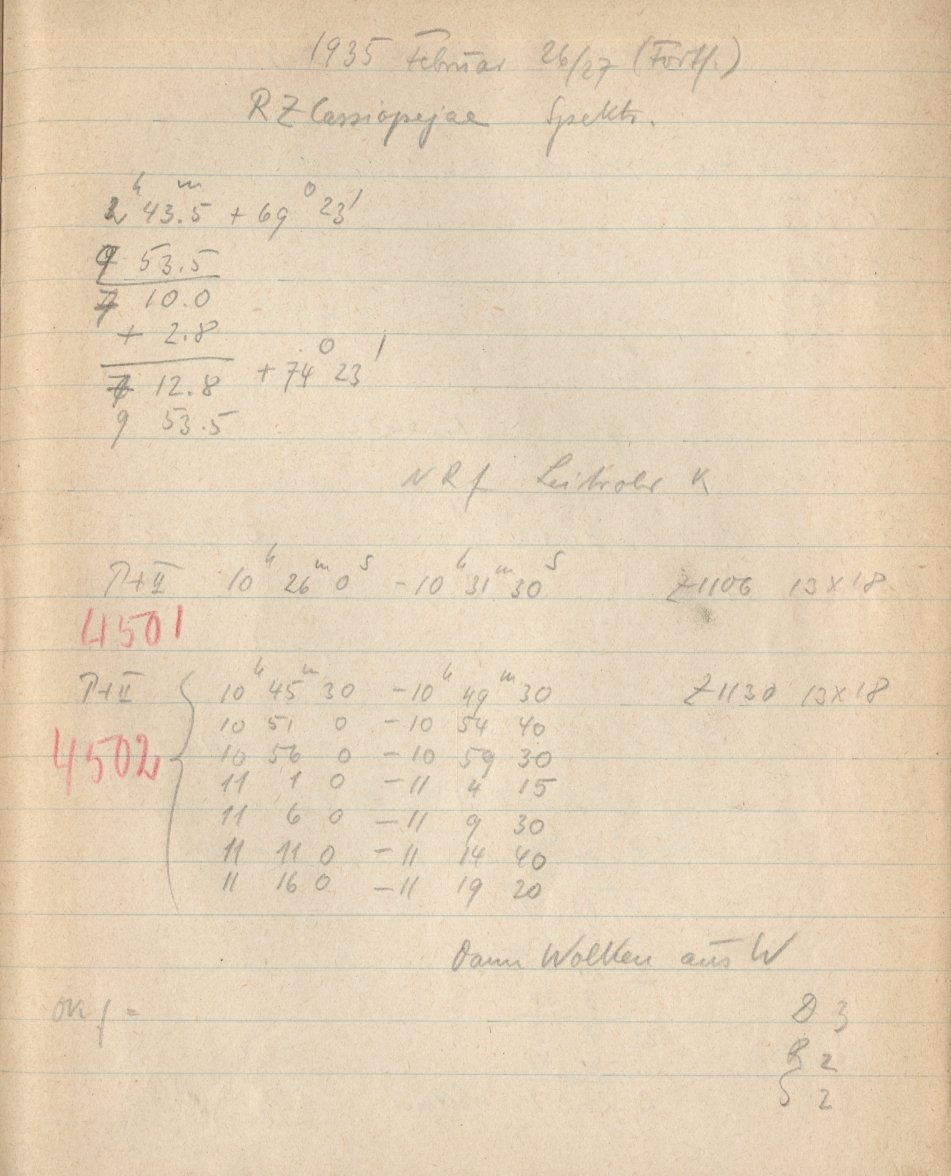 1935 Februar 26/27 (Forts.)
RZ Cassiopejae Spektr.
2h 43m.5 + 69° 23'
9 53.5
7 10.0
+ 2.8
7 12.8 + 74° 23'
9 53.5
NRf Leitrohr K
P+II 10h 26m 0s - 10h 31m 30s Z1106 13x18
4501
P+II 10h 45m 30 - 10h 49m 30 Z1130 13x18
10 51 0 - 10 54 40
4502 10 56 0 - 10 59 30
11 1 0 - 11 4 15
11 6 0 - 11 9 30
11 11 0 - 11 14 40
11 16 0 - 11 19 20
Dann Wolken aus W
D 3
R 2
S 2